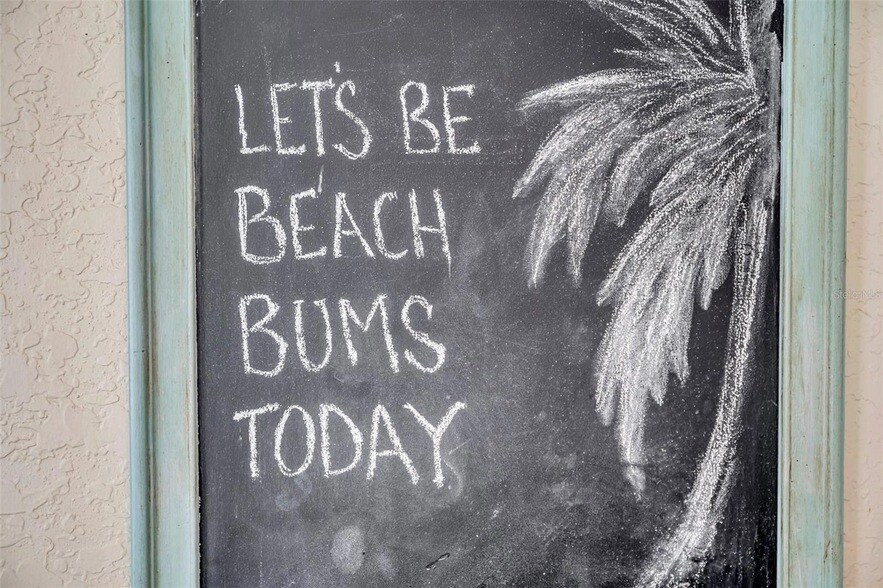 LET'S BE
BEACH
BUMS
TODAY